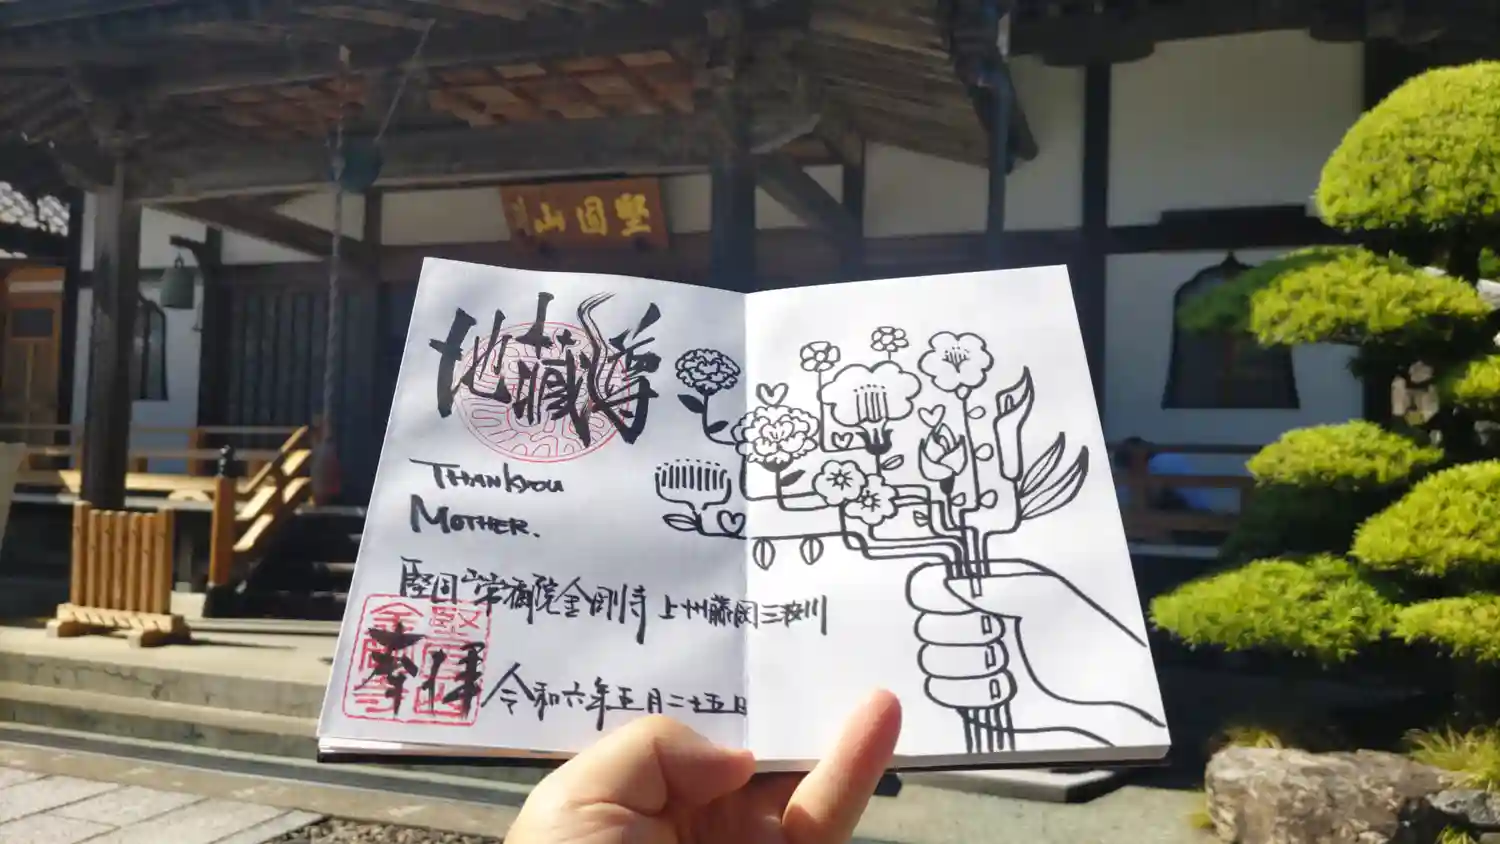 堅固山
地蔵尊
THANKYOU
MOTHER.
堅固山常福院金剛寺 上州藤岡三波川
奉拝 令和六年五月二十五日